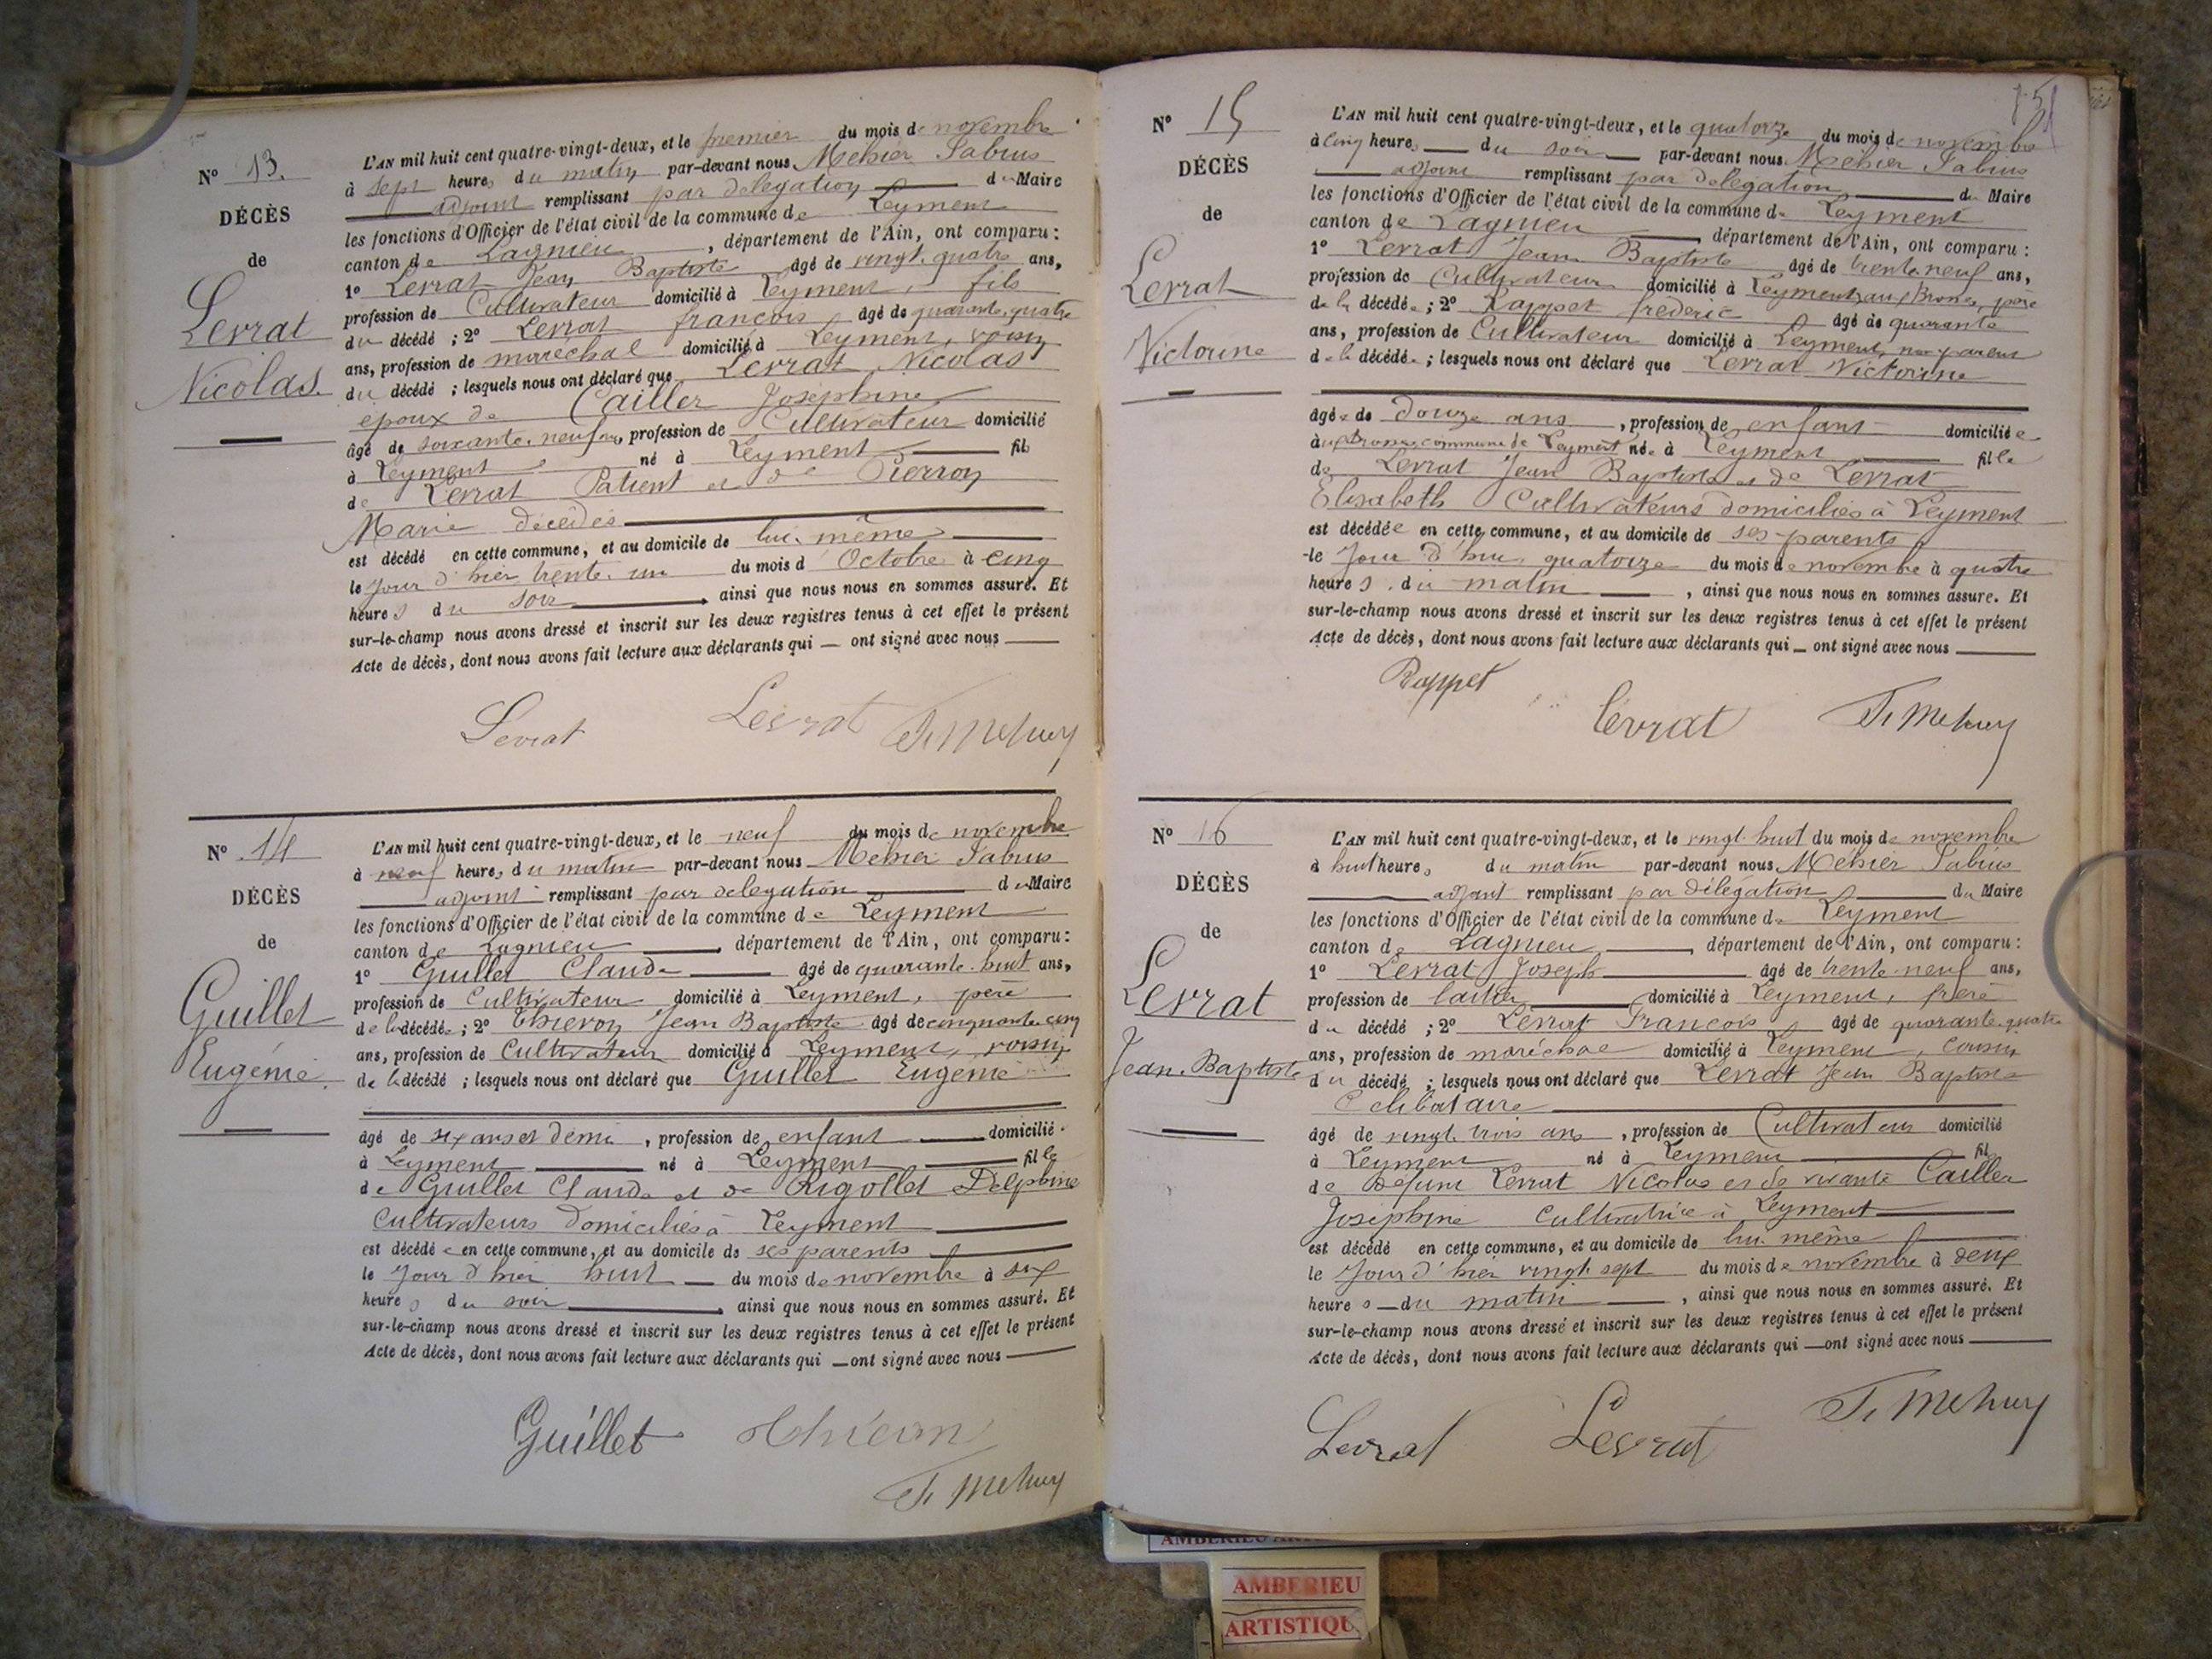 N° 13.
DÉCÈS
de
Levrat
Nicolas.
L'AN mil huit cent quatre-vingt-deux, et le premier du mois de novembre
à sept heures du matin par-devant nous Mehier Fabius
adjoint remplissant par délégation du Maire
les fonctions d'Officier de l'état civil de la commune de Leyment
canton de Lagnieu, département de l'Ain, ont comparu :
1° Levrat Jean Baptiste âgé de vingt-quatre ans,
profession de Cultivateur domicilié à Leyment, fils
du décédé ; 2° Levrat françois âgé de quarante-quatre
ans, profession de maréchal domicilié à Leyment, voisin
du décédé ; lesquels nous ont déclaré que Levrat Nicolas
époux de Cailler Joséphine
âgé de soixante-neuf ans, profession de Cultivateur domicilié
à Leyment né à Leyment fils
de Levrat Patient et de Pierron
Marie décédés
est décédé en cette commune, et au domicile de lui-même
le jour d'hier trente-un du mois d'Octobre à cinq
heures du soir, ainsi que nous nous en sommes assuré. Et
sur-le-champ nous avons dressé et inscrit sur les deux registres tenus à cet effet le présent
Acte de décès, dont nous avons fait lecture aux déclarants qui — ont signé avec nous
Levrat Levrat
N° 14
DÉCÈS
de
Guillet
Eugénie.
L'AN mil huit cent quatre-vingt-deux, et le neuf du mois de novembre
à neuf heures du matin par-devant nous Mehier Fabius
adjoint remplissant par délégation du Maire
les fonctions d'Officier de l'état civil de la commune de Leyment
canton de Lagnieu, département de l'Ain, ont comparu :
1° Guillet Claude âgé de quarante-huit ans,
profession de Cultivateur domicilié à Leyment, père
de la décédée ; 2° Thiévon Jean Baptiste âgé de cinquante-cinq
ans, profession de Cultivateur domicilié à Leyment, voisin
de la décédé ; lesquels nous ont déclaré que Guillet Eugénie
âgé de six ans et demi, profession de enfant domicilié
à Leyment né à Leyment fille
de Guillet Claude et de Rigollet Delphine
Cultivateurs domiciliés à Leyment
est décédée en cette commune, et au domicile de ses parents
le jour d'hier huit du mois de novembre à six
heures du soir, ainsi que nous nous en sommes assuré. Et
sur-le-champ nous avons dressé et inscrit sur les deux registres tenus à cet effet le présent
Acte de décès, dont nous avons fait lecture aux déclarants qui — ont signé avec nous
Guillet
N° 15
DÉCÈS
de
Levrat
Victorine
L'AN mil huit cent quatre-vingt-deux, et le quatorze du mois de novembre
à cinq heures du soir par-devant nous Mehier Fabius
adjoint remplissant par délégation du Maire
les fonctions d'Officier de l'état civil de la commune de Leyment
canton de Lagnieu, département de l'Ain, ont comparu :
1° Levrat Jean Baptiste âgé de trente-neuf ans,
profession de Cultivateur domicilié à Leyment, père
de la décédée ; 2° Rappet frédéric âgé de quarante
ans, profession de Cultivateur domicilié à Leyment, non parent
de la décédée ; lesquels nous ont déclaré que Levrat Victorine
âgée de douze ans, profession de enfant domiciliée
commune de Leyment née à Leyment fille
de Levrat Jean Baptiste et de Levrat
Elisabeth Cultivateurs domiciliés à Leyment
est décédée en cette commune, et au domicile de ses parents
le jour d'hui quatorze du mois de novembre à quatre
heures du matin, ainsi que nous nous en sommes assuré. Et
sur-le-champ nous avons dressé et inscrit sur les deux registres tenus à cet effet le présent
Acte de décès, dont nous avons fait lecture aux déclarants qui — ont signé avec nous
Rappet Levrat
N° 16
DÉCÈS
de
Levrat
Jean-Baptiste
L'AN mil huit cent quatre-vingt-deux, et le vingt-huit du mois de novembre
à huit heures du matin par-devant nous Mehier Fabius
adjoint remplissant par délégation du Maire
les fonctions d'Officier de l'état civil de la commune de Leyment
canton de Lagnieu, département de l'Ain, ont comparu :
1° Levrat Joseph âgé de trente-neuf ans,
profession de laitier domicilié à Leyment, frère
du décédé ; 2° Levrat François âgé de quarante-quatre
ans, profession de maréchal domicilié à Leyment, cousin
du décédé ; lesquels nous ont déclaré que Levrat Jean Baptiste
Célibataire
âgé de vingt-trois ans, profession de Cultivateur domicilié
à Leyment né à Leyment fils
de défunt Levrat Nicolas et de vivante Cailler
Joséphine Cultivatrice à Leyment
est décédé en cette commune, et au domicile de lui-même
le jour d'hier vingt-sept du mois de novembre à deux
heures du matin, ainsi que nous nous en sommes assuré. Et
sur-le-champ nous avons dressé et inscrit sur les deux registres tenus à cet effet le présent
Acte de décès, dont nous avons fait lecture aux déclarants qui — ont signé avec nous
Levrat Levrat
AMBERIEU
ARTISTIQU